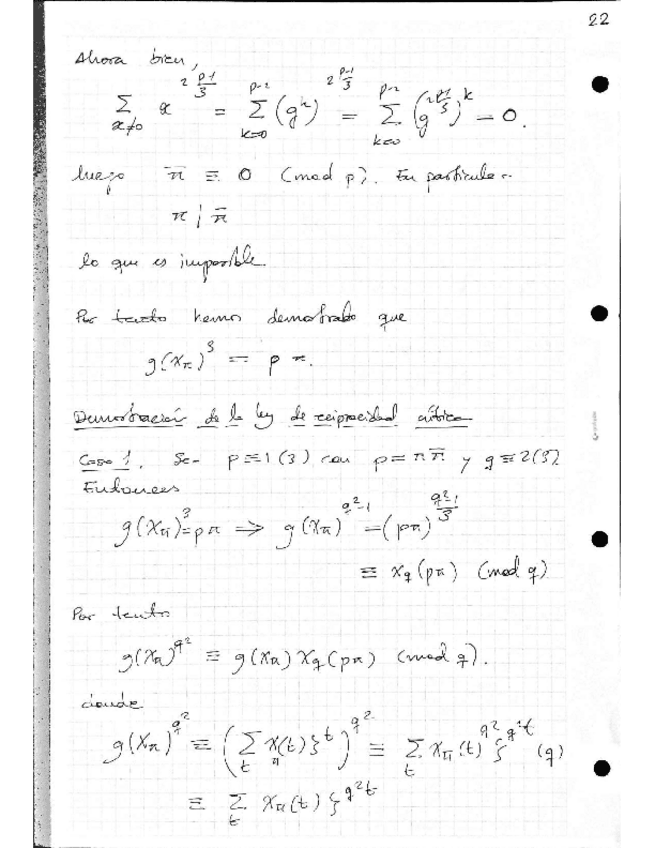 22
Ahora bien,
∑_{x≠0} x^{2 (p-1)/3} = ∑_{k=0}^{p-2} (g^k)^{2 (p-1)/3} = ∑_{k=0}^{p-2} (g^{2 (p-1)/3})^k = 0.
luego π̄ ≡ 0 (mod p). En particular
π | π̄
lo que es imposible.
Por tanto hemos demostrado que
g(χ_π)^3 = p π.
Demostración de la ley de reciprocidad cúbica
Caso 1. Sea p≡1(3) con p=π π̄ y q≡2(3)
Entonces
g(χ_π)^3 = pπ ⇒ g(χ_π)^{q²-1} = (pπ)^{(q²-1)/3}
≡ χ_q(pπ) (mod q)
Por tanto
g(χ_π)^{q²} ≡ g(χ_π) χ_q(pπ) (mod q).
donde
g(χ_π)^{q²} ≡ (∑_t χ_π(t) ζ^t)^{q²} ≡ ∑_t χ_π(t)^{q²} ζ^{q²t} (q)
≡ ∑_t χ_π(t) ζ^{q²t}